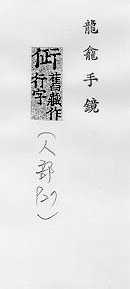 龍龕手鏡
舊藏作
行字
(人部 P27)